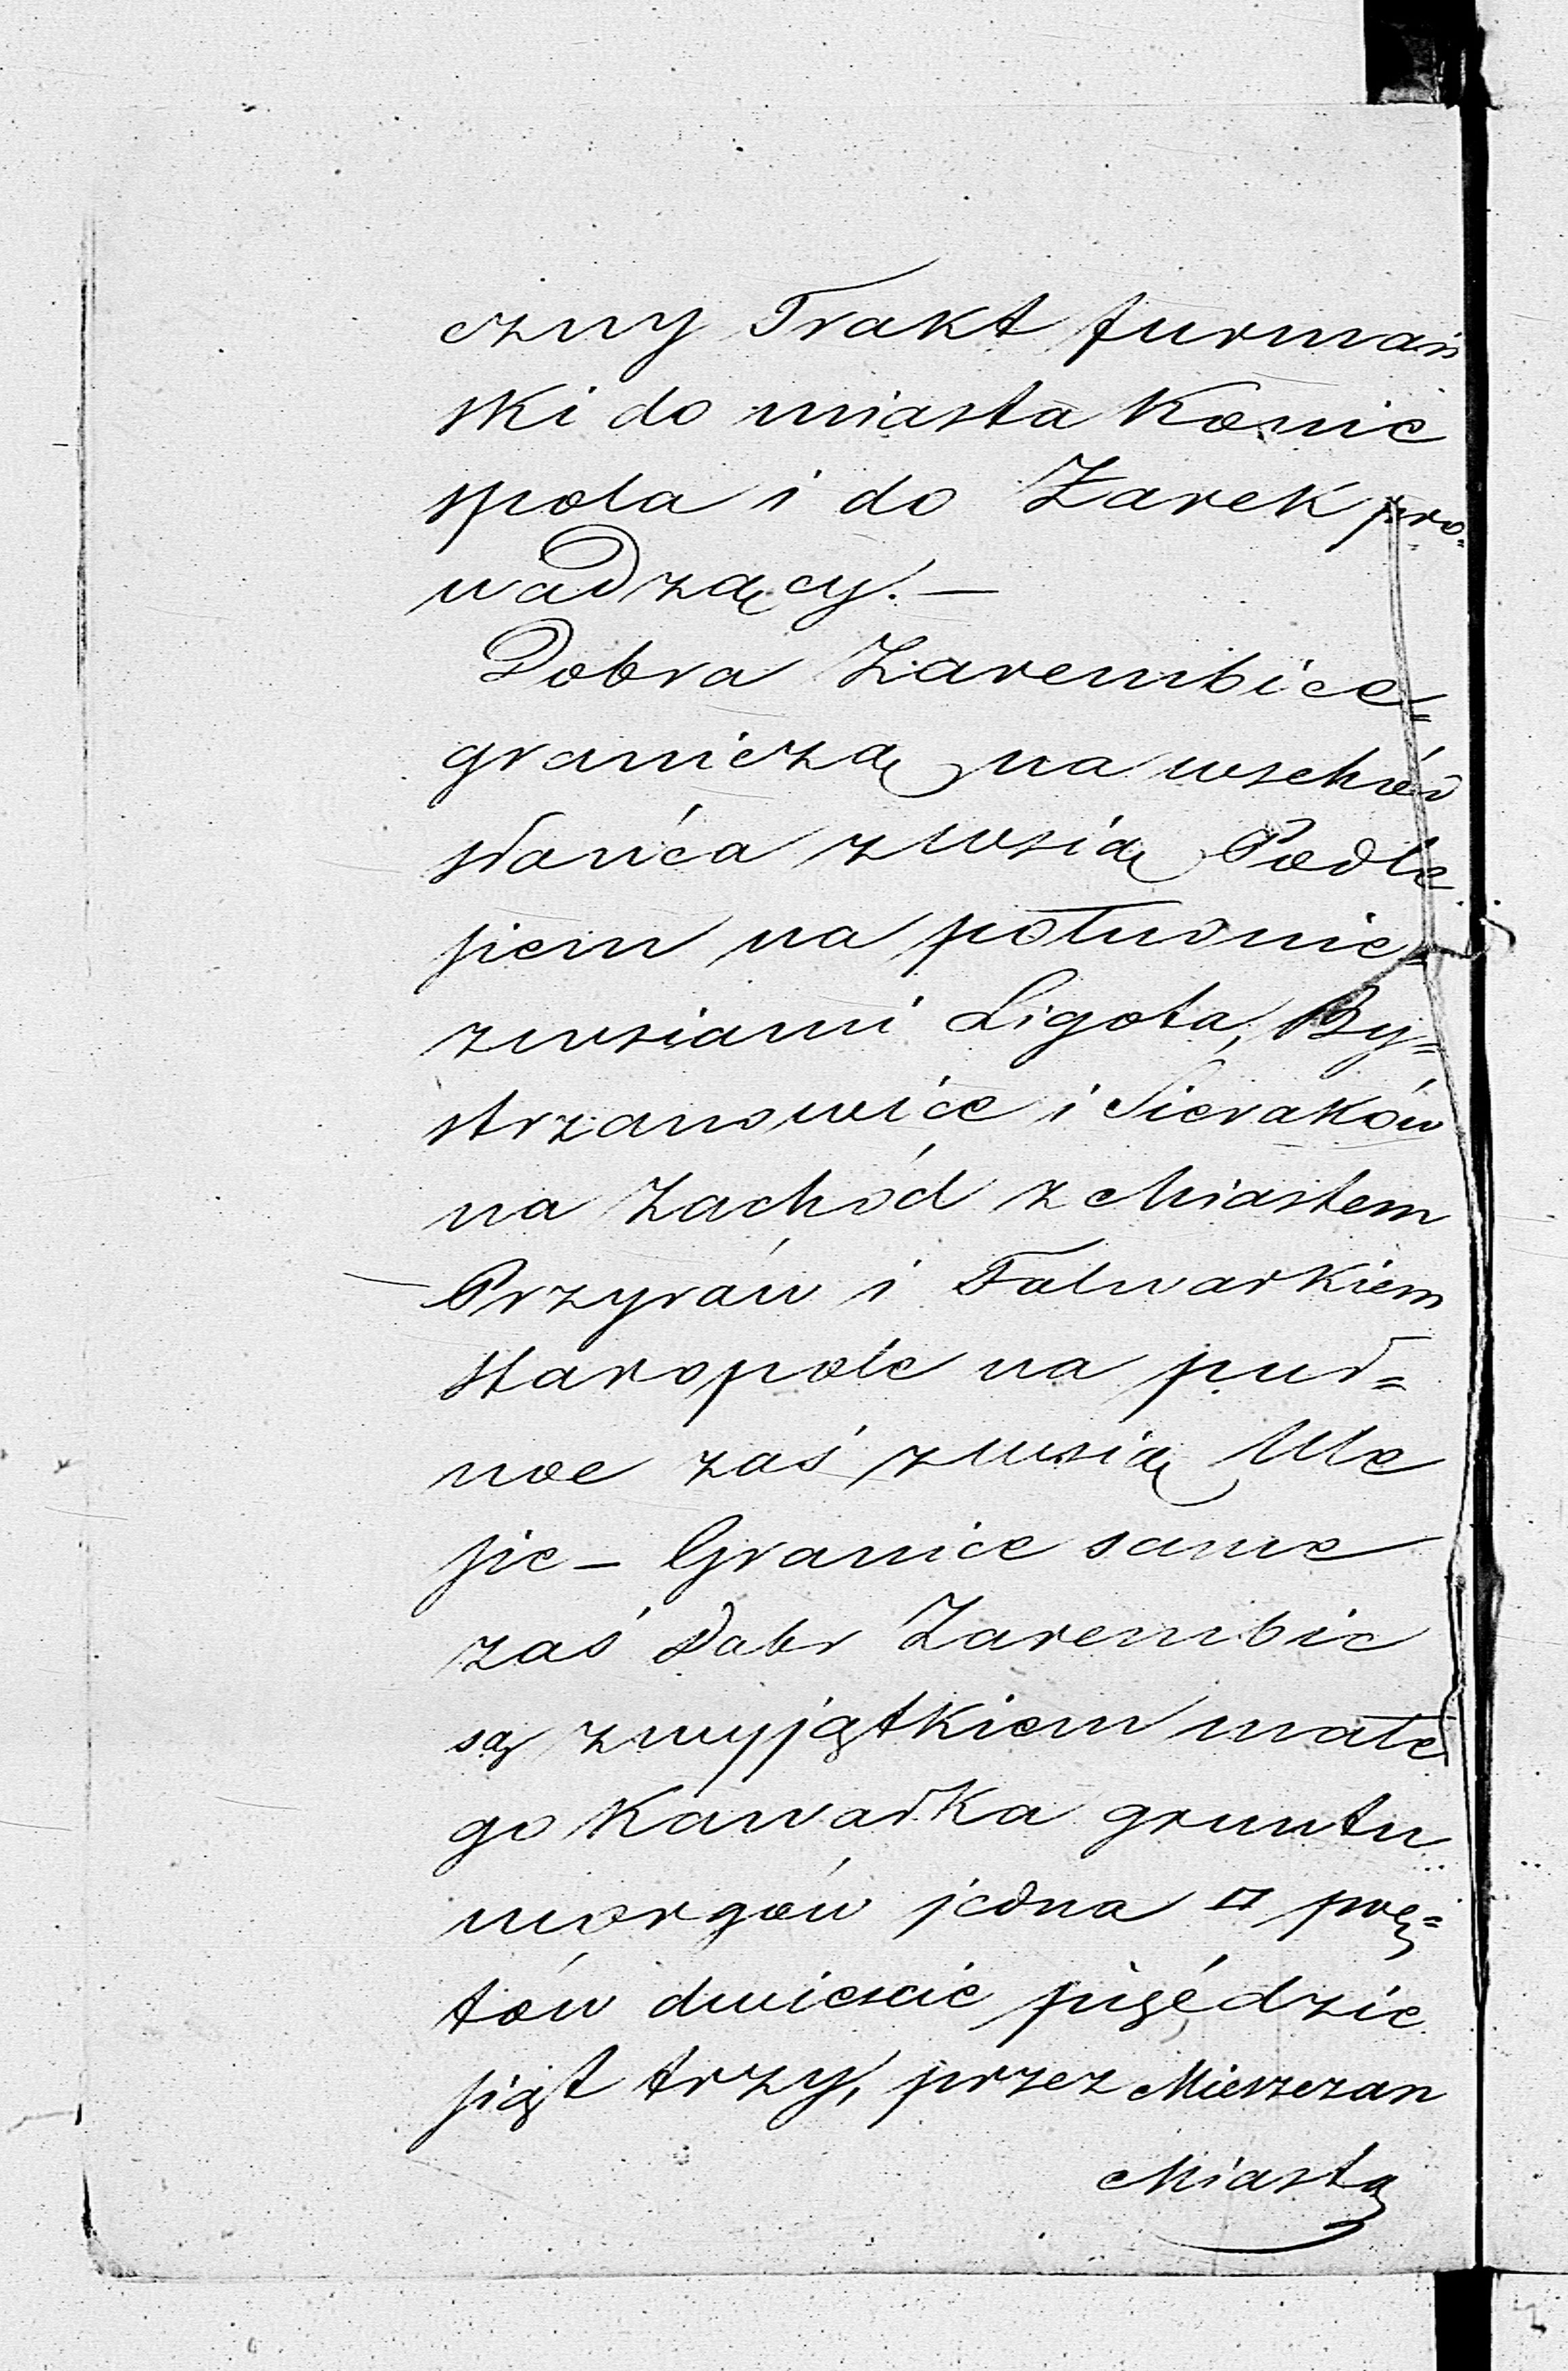 czny Trakt furmań
ski do miasta Konic
spola i do Żarek pro=
wadzący. —
Dobra Zarembice=
graniczą na wschód
słońca z wsią Podle
siem na południe=
z wsiami Ligota, By=
strzanowice i Sieraków
na Zachód z Miastem
Przyrów i Folwarkiem
Staropole na puł=
noc zaś z wsią Ule
sie — Granice same
zaś Dobr Zarembic
są z wyjątkiem małe
go Kawałka gruntu
morgów jedna □ prę=
tów dwieście pięćdzie
siąt trzy, przez Mieszczan
Miasta